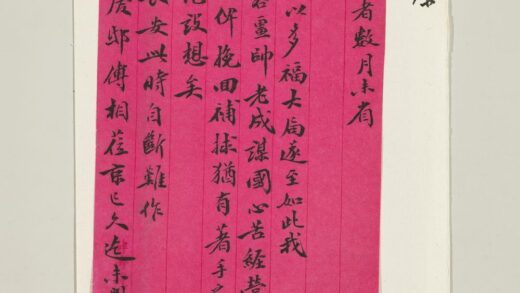 者數月未省
以多福大局遂至如此我
疆帥老成謀國心苦經營
挽回補捄猶有著手
設想矣
安此時自斷難作
邸傅相蒞京已久迄未